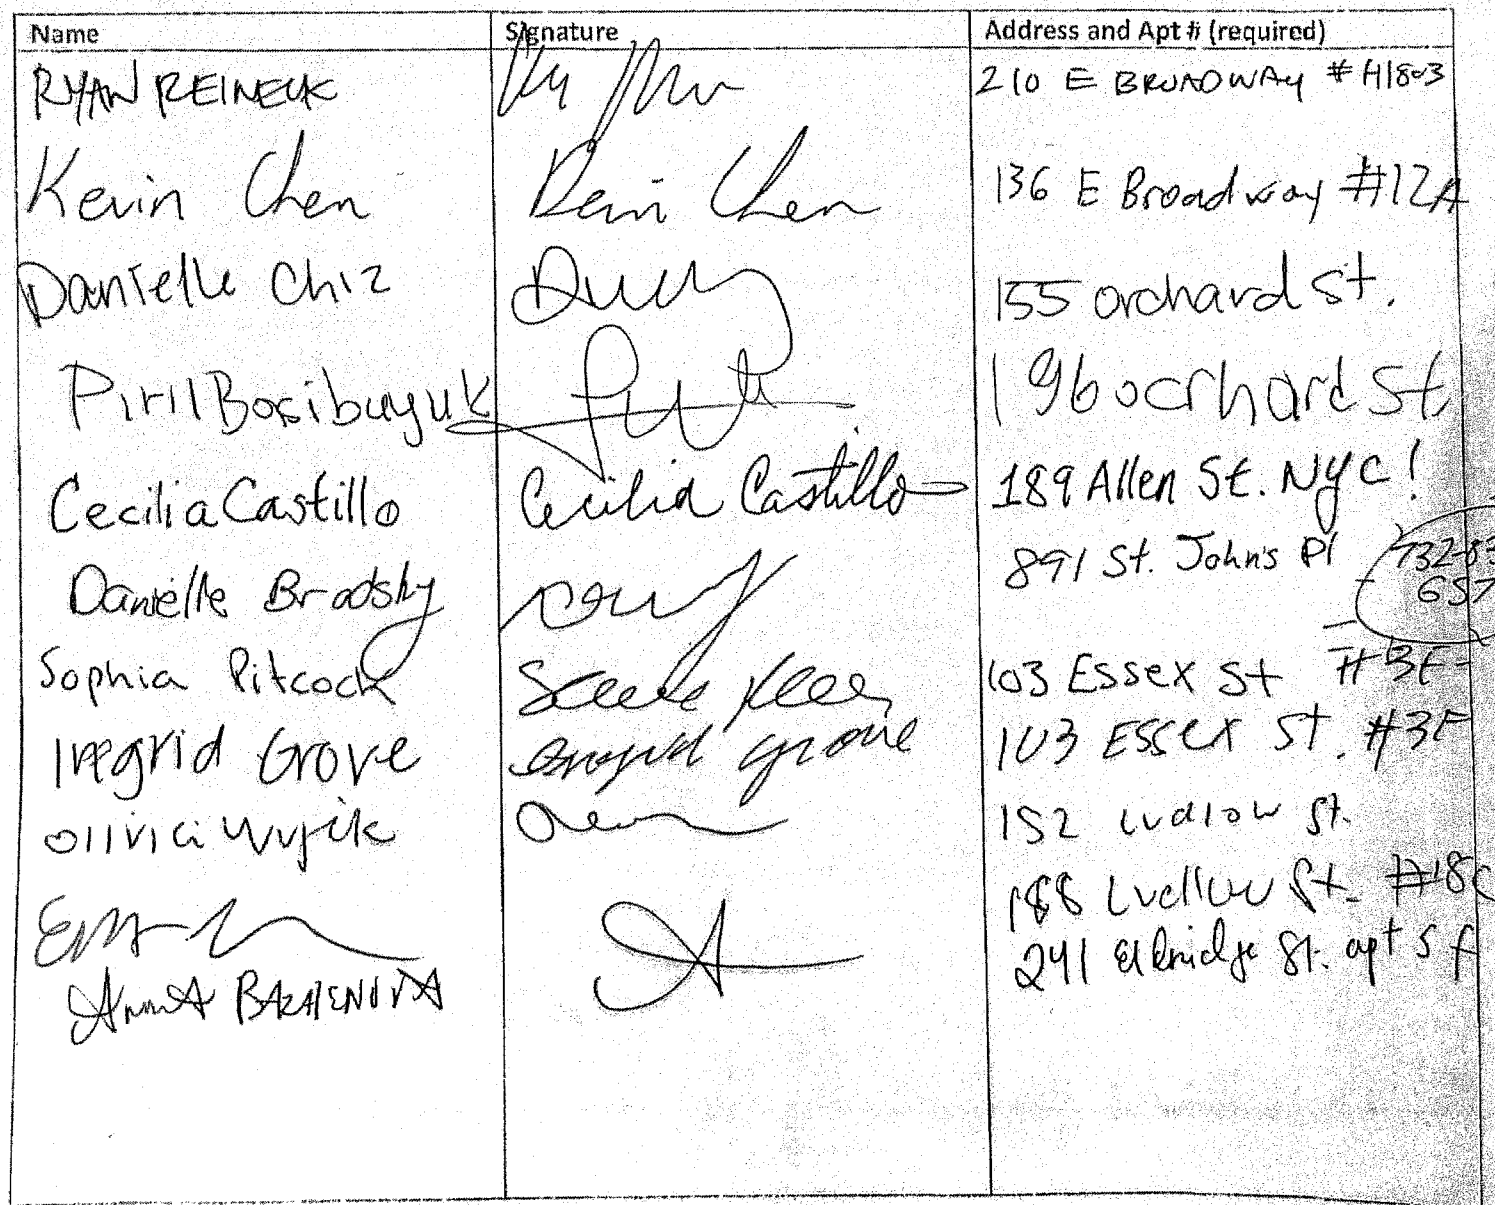 Name Signature Address and Apt # (required)
RYAN REINECK 210 E BROADWAY # H1803
Kevin Chen Kevin Chen 136 E Broadway #12A
Danielle Chiz 155 orchard St.
Piril Bosibuyuk 196 ocrhard St
Cecilia Castillo Cecilia Castillo 189 Allen St. NYC!
Danielle Brodsky 891 St. John's Pl
732-83
657
Sophia Pitcock 103 Essex St #3F
Ingrid Grove Ingrid Grove 103 Essex St. #3F
Olivia Wujcik 152 Ludlow St.
188 Ludlow St. #18C
Anna BAZHENOVA 241 Eldridge St. apt 5 f